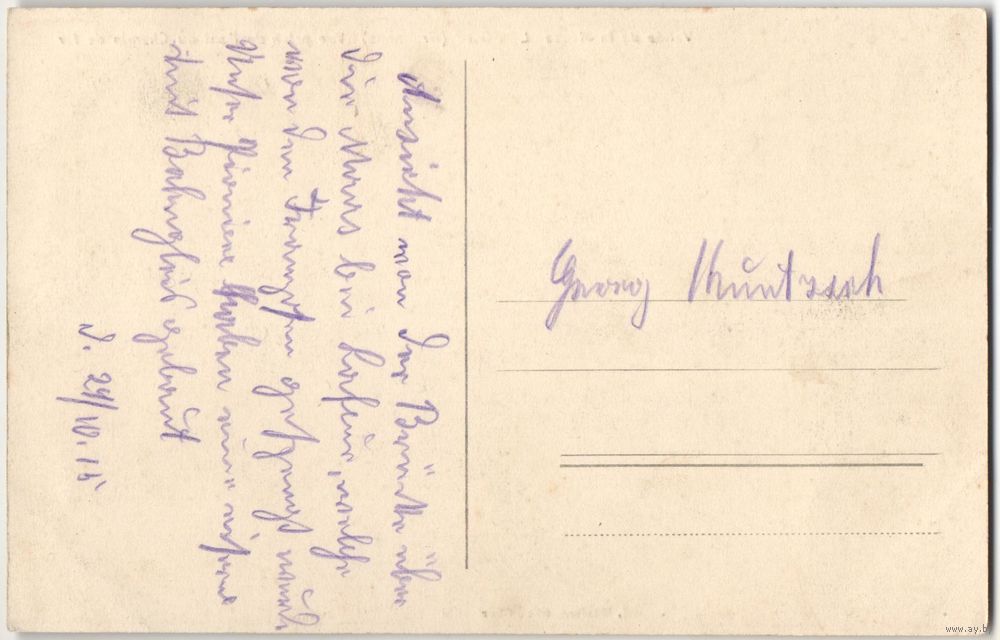 Ansicht von der Brücke über
die Maas bei Lafour, welche
von den Franzosen gesprengt wurde
Unsere Pioniere haben eine
das Bahngleis gebaut
d. 24/10.15
Georg Kuntzsch
www.ay.b